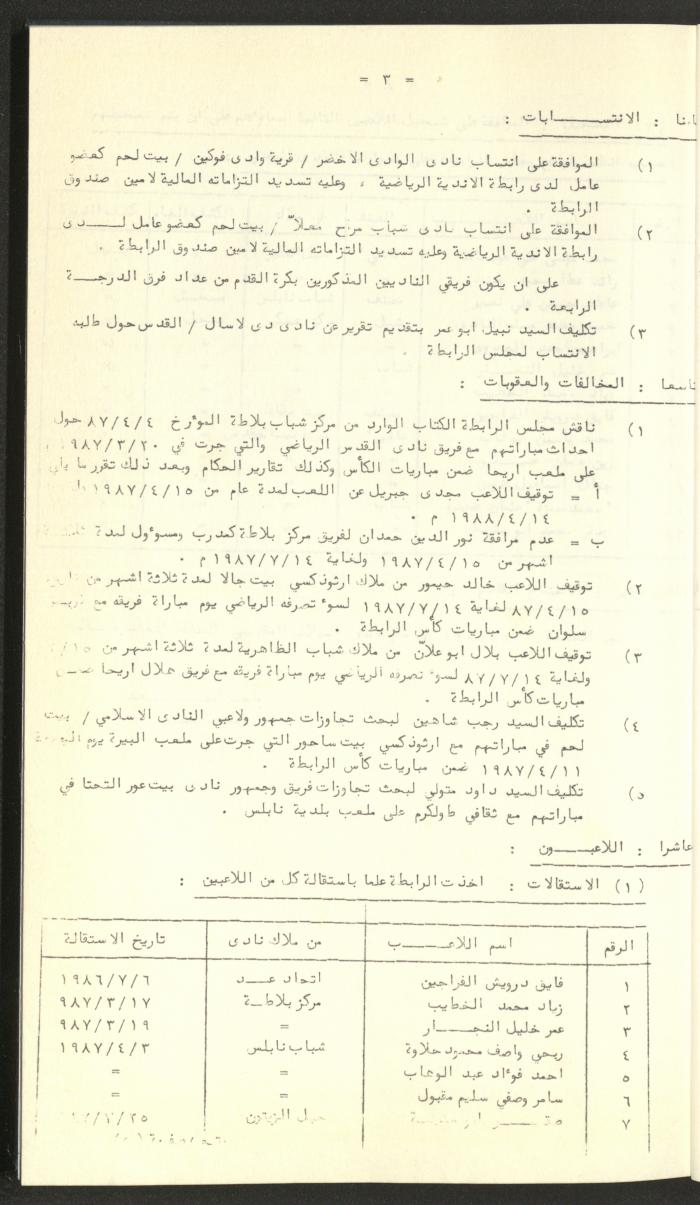 = ٣ =
: الانتســـــابات :
١) الموافقة على انتساب نادى الوادى الاخضر / قرية وادى فوكين / بيت لحم كعضو
عامل لدى رابطة الاندية الرياضية ، وعليه تسديد التزاماته المالية لامين صندوق
الرابطة .
٢) الموافقة على انتساب نادى شباب مراح معلاّ / بيت لحم كعضو عامل لـــدى
رابطة الاندية الرياضية وعليه تسديد التزاماته المالية لامين صندوق الرابطة .
على ان يكون فريقي الناديين المذكورين بكرة القدم من عداد فرق الدرجـــة
الرابعة .
٣) تكليف السيد نبيل ابو عمر بتقديم تقرير عن نادى دى لاسال / القدس حول طلبه
الانتساب لمجلس الرابطة .
تاسعا : المخالفات والعقوبات :
١) ناقش مجلس الرابطة الكتاب الوارد من مركز شباب بلاطة المؤرخ ٨٧/٤/٤ حول
احداث مباراتهم مع فريق نادى القدس الرياضي والتي جرت في ١٩٨٧/٣/٢٠
على ملعب اريحا ضمن مباريات الكأس وكذلك تقارير الحكام وبعد ذلك تقرر ما يلي
أ = توقيف اللاعب مجدى جبريل عن اللعب لمدة عام من ١٩٨٧/٤/١٥
١٩٨٨/٤/١٤ م .
ب = عدم مرافقة نور الدين حمدان لفريق مركز بلاطة كمدرب ومسوءول لمدة
اشهر من ١٩٨٧/٤/١٥ ولغاية ١٩٨٧/٧/١٤ م .
٢) توقيف اللاعب خالد حيمور من ملاك ارثوذكسي بيت جالا لمدة ثلاثة اشهر من
٨٧/٤/١٥ لغاية ١٩٨٧/٧/١٤ لسوء تصرفه الرياضي يوم مباراة فريقه مع
سلوان ضمن مباريات كأس الرابطة .
٣) توقيف اللاعب بلال ابو علاّن من ملاك شباب الظاهرية لمدة ثلاثة اشهر من
ولغاية ٨٧/٧/١٤ لسوء تصرفه الرياضي يوم مباراة فريقه مع فريق هلال اريحا ضمـن
مباريات كأس الرابطة .
٤) تكليف السيد رجب شاهين لبحث تجاوزات جمهور ولاعبي النادى الاسلامي / بيت
لحم في مباراتهم مع ارثوذكسي بيت ساحور التي جرت على ملعب البيرة يوم
١٩٨٧/٤/١١ ضمن مباريات كأس الرابطة .
٥) تكليف السيد داود متولي لبحث تجاوزات فريق وجمهور نادى بيت عور التحتا في
مباراتهم مع ثقافي طولكرم على ملعب بلدية نابلس .
عاشرا : اللاعبـــــون :
(١) الاستقالات : اخذت الرابطة علما باستقالة كل من اللاعبين :
الرقم اسم اللاعـــــب من ملاك نادى تاريخ الاستقالة
١ فايق درويش الفراجين اتحاد ١٩٨٦/٧/٦
٢ زياد محمد الخطيب مركز بلاطـة ٩٨٧/٣/١٧
٣ عمر خليل النجـــار = ٩٨٧/٣/١٩
٤ ربحي واصف محمود حلاوة شباب نابلس ١٩٨٧/٤/٣
٥ احمد فوءاد عبد الوهاب = =
٦ سامر وصفي سليم مقبول = =
٧ جبل الزيتون